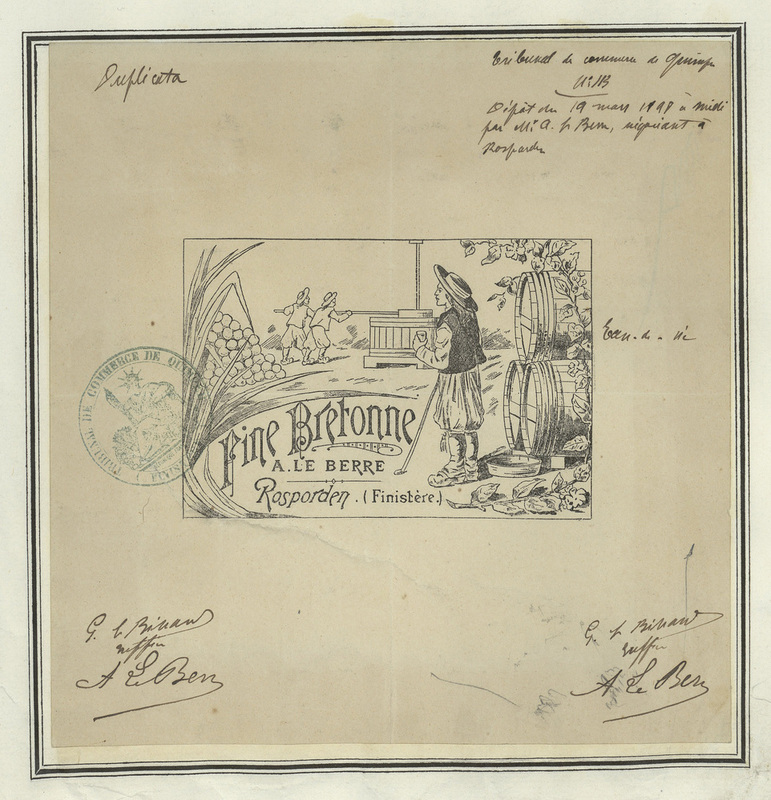 Duplicata
Tribunal de commerce de Quimper
Dépôt du 19 mars 1898 à midi
par Mr A. Le Berre, négociant à
Rosporden
Eau-de-vie
TRIBUNAL DE COMMERCE DE QUIMPER
(FINIST
Fine Bretonne
A. LE BERRE
Rosporden. (Finistère.)
G. le Bihan
greffier
A Le Berre
G. le Bihan
greffier
A Le Berre